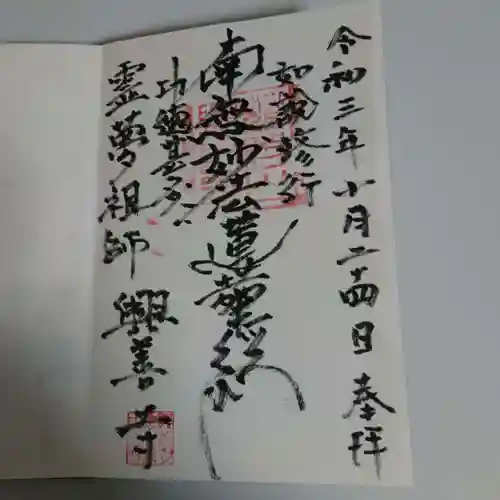 令和三年十月二十四日 奉拝
如説修行
南無妙法蓮華経
功徳甚多
霊夢祖師 興善寺